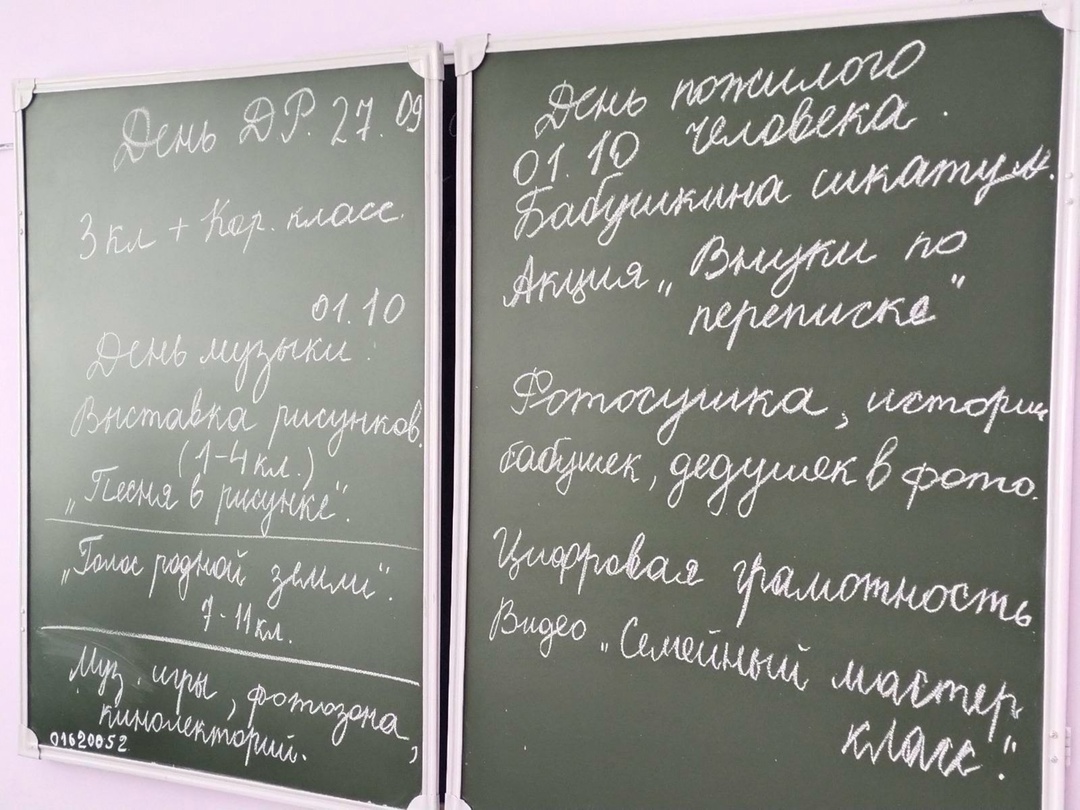 День ДР. 27.09
3 кл + Кор. класс.
01.10
День музыки.
Выставка рисунков.
(1-4 кл.)
„Песня в рисунке".
„Голос родной земли".
7-11 кл.
Муз. игры, фотозона,
кинолекторий.
01620052
День пожилого
01.10 человека.
Бабушкина шкатул.
Акция „Внуки по
переписке"
Фотосушка, истории
бабушек, дедушек в фото.
Цифровая грамотность
Видео „Семейный мастер
класс".